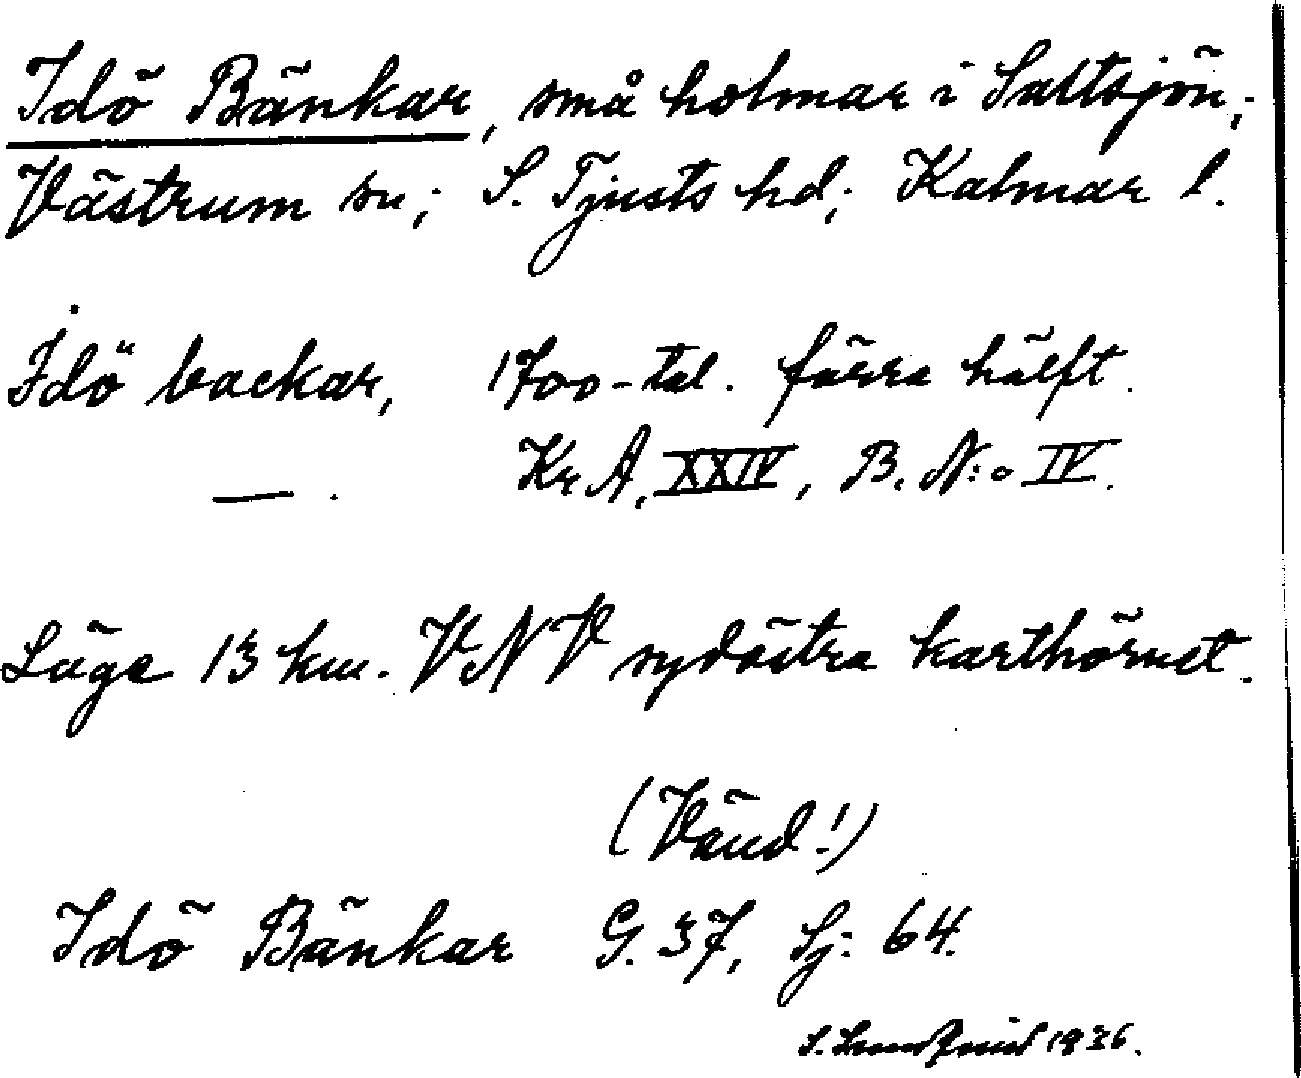 Idö Bänkar, små holmar i Saltsjön;
Västrum sn; S. Tjusts hd; Kalmar l.
Idö backar, 1700-tal. förra hälft.
— . Kr A. XXIV, B. N:o IV.
Läge 13 km. VNV sydöstra karthörnet.
(Vänd!)
Idö Bänkar G. 37, Sj: 64.
S. 1936.